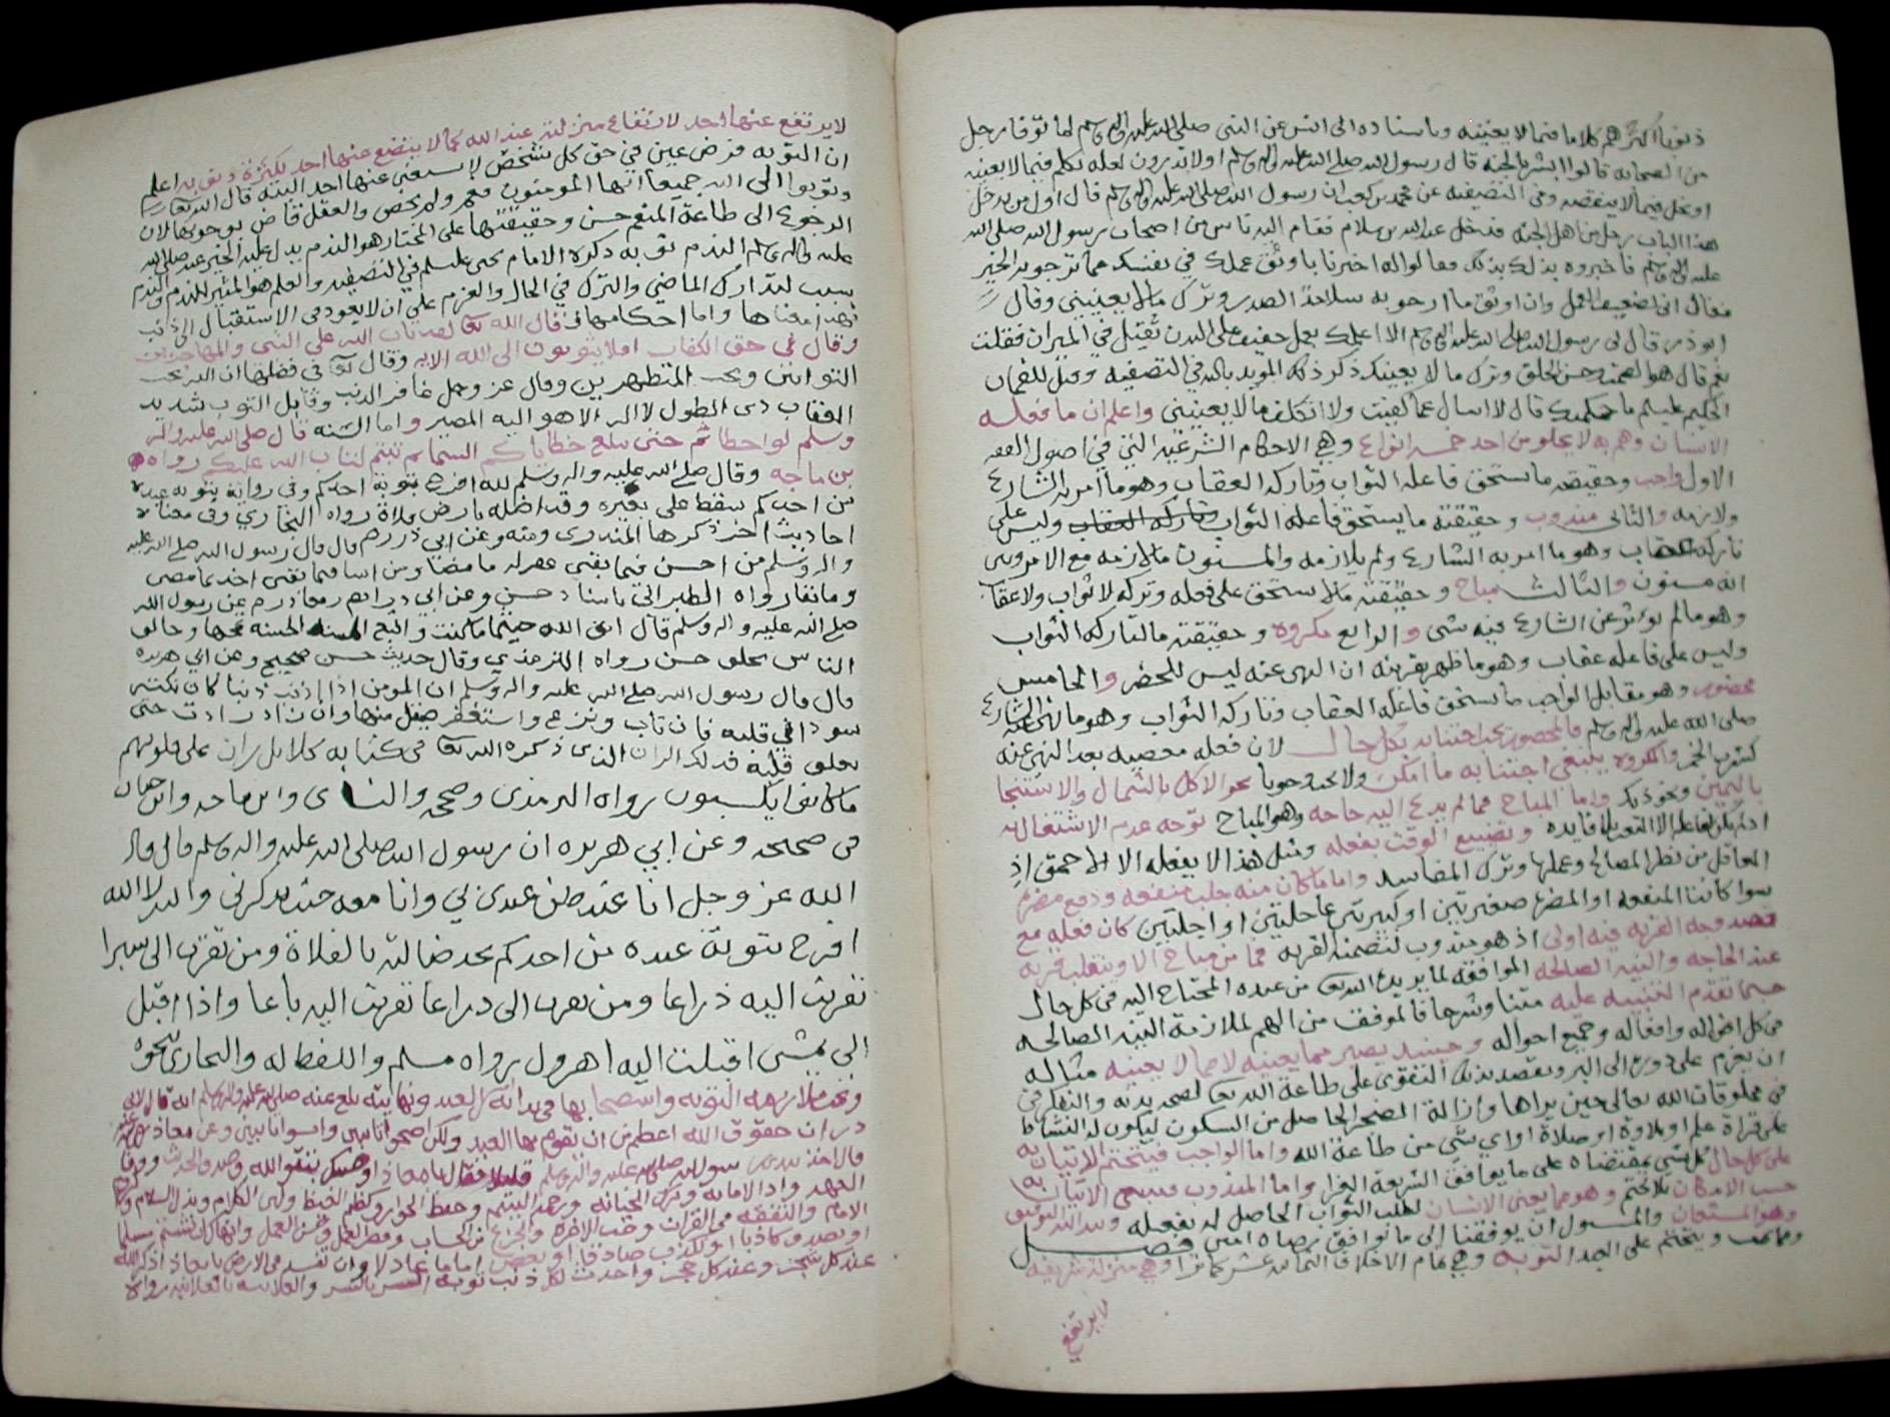 ذنوبا اكثرهم كلاما فيما لا يعنيه وباسناده الى انس عن النبي صلى الله عليه واله وسلم لما توفا رجل
من الصحابه قالوا ابشر بالجنه قال رسول الله صلى الله عليه واله وسلم اولا تدرون لعله تكلم فيما لا يعنيه
او بخل فيما لا ينقصه وفي التصفيه عن محمد بن كعب ان رسول الله صلى الله عليه واله وسلم قال اول من يدخل
هذا الباب رجل من اهل الجنه فدخل عبد الله بن سلام فقام اليه ناس من اصحاب رسول الله صلى الله
عليه واله وسلم فاخبروه بذلك وقالوا له اخبرنا باوثق عملك في نفسك مما ترجو به الخير
فقال اني لضعيف العمل وان اوثق ما ارجو به سلامة الصدر وترك ما لا يعنيني وقال
ابو ذر قال لي رسول الله صلى الله عليه واله وسلم الا اعلمك بعمل خفيف على البدن ثقيل في الميزان فقلت
نعم قال هو الصمت وحسن الخلق وترك ما لا يعنيك ذكر ذلك المويد بالله في التصفيه وقيل للقمان
الحكيم عليلم ما حكمتك قال لا اسال عما كفيت ولا اتكلف ما لا يعنيني واعلم ان ما فعله
الانسان وهم به لا يخلو من احد خمسه انواع وهي الاحكام الشرعيه التي في اصول الفقه
الاول واجب وحقيقته ما يستحق فاعله الثواب وتاركه العقاب وهو ما امر به الشارع
ولازمه والثاني مندوب وحقيقته ما يستحق فاعله الثواب وتاركه العقاب وليس على
تاركه عقاب وهو ما امر به الشارع ولم يلازمه والمسنون ما لازمه مع الامر وبين
انه مسنون والثالث مباح وحقيقته ما لا يستحق على فعله وتركه لا ثواب ولا عقاب
وهو ما لم يوثر عن الشارع فيه شي والرابع مكروه وحقيقته ما لتاركه الثواب
وليس على فاعله عقاب وهو ما ظهر بقرينه ان النهي عنه ليس للحضر والخامس
محضور وهو مقابل الواجب ما يستحق فاعله العقاب وتاركه الثواب وهو ما نهى عنه الشارع
صلى الله عليه واله وسلم فالمحضور يجب اجتنابه بكل حال لان فعله معصيه بعد النهي عنه
كشرب الخمر والمكروه ينبغي اجتنابه ما امكن ولا يجب وجوبا نحو الاكل بالشمال والاستنجا
باليمين ونحو ذلك واما المباح فما لم يدع اليه حاجه وهو المباح توجه عدم الاشتغال به
اذ لم يكن لفاعله الا التعب بلا فايده وتضييع الوقت بفعله ومثل هذا لا يفعله الا الاحمق اذ
العاقل من نظر المصالح وعملها وترك المفاسد واما ما كان منه جلب منفعه ودفع مضره
سوا كانتا المنفعه او المضره صغيرتين او كبيرتين عاجلتين او اجلتين كان فعله مع
قصد وجه القربه فيه اولى اذ هو مندوب لتضمنه القربه فما من مباح الا وينقلب قربه
عند الحاجه والنيه الصالحه الموافقه لما يريد الله تعالى من عبده المحتاج اليه في كل حال
حسبما تقدم التنبيه عليه متنا وشرحا فالموفق من الهم لملازمة النيه الصالحه
في كل اقواله وافعاله وجميع احواله وحينئذ يصير مما يعنيه لا مما لا يعنيه مثاله
ان يعزم على دورع الى البر ويقصد بذلك التقوى على طاعة الله تعالى لصحه بدنه والتفكر في
مخلوقات الله تعالى حين يراها وازالة الضجر الحاصل من السكون ليكون له النشاط
على قراة علم او تلاوة او صلاة او اي شي من طاعة الله واما الواجب فيتحتم الاتيان به
على كل حال كل شي بمقتضاه على ما يوافق الشريعة الغرا واما المندوب فينبغي الاتيان به
حسب الامكان بلا تحتم وهو مما يعني الانسان لطلب الثواب الحاصل له بفعله وبيد الله التوفيق
وهو المستعان والمسئول ان يوفقنا الى ما يوافق رضاه امين فصل
ومما يجب ويتحتم على العبد التوبه وهي تمام الاخلاق الثمانيه عشر كما ترا وهي منزله شريفه
لا يرتفع
لا يرتفع عنها احد لارتفاع منزلته عند الله كما لا يتضع عنها احد لكثرة ذنوبه اعلم
ان التوبه فرض عين في حق كل شخص لا يستغني عنها احد البته قال الله تعالى
وتوبوا الى الله جميعا ايها المومنون فعم ولم يخص والعقل قاض بوجوبها لان
الرجوع الى طاعة المنعم حسن وحقيقتها على المختار هو الندم يدل عليه الخبر عنه صلى الله
عليه واله وسلم الندم توبه ذكره الامام يحيى عليلم في التصفيه والعلم هو المثير للندم والندم
سبب لتدارك الماضي والترك في الحال والعزم على ان لا يعود في الاستقبال الى الذنب
فهذا معناها واما احكامها فقال الله تعالى لقد تاب الله على النبي والمهاجرين
وقال في حق الكفار افلا يتوبون الى الله الايه وقال تعالى في فضلها ان الله يحب
التوابين ويحب المتطهرين وقال عز وجل غافر الذنب وقابل التوب شديد
العقاب ذي الطول لا اله الا هو اليه المصير واما السنه قال صلى الله عليه واله
وسلم لو اخطاتم حتى تبلغ خطاياكم السما ثم تبتم لتاب الله عليكم رواه
بن ماجه وقال صلى الله عليه واله وسلم لله افرح بتوبة احدكم وفي رواية بتوبه عبده
من احدكم سقط على بعيره وقد اضله بارض فلاة رواه البخاري وفي معناه
احاديث اخر ذكرها المنذري ومنه وعن ابي ذر رم قال قال رسول الله صلى الله عليه
واله وسلم من احسن فيما بقي غفر له ما مضا ومن اسا فيما بقي اخذ بما مضى
وما بقا رواه الطبراني باسناد حسن وعن ابي ذر ومعاذ رم عن رسول الله
صلى الله عليه واله وسلم قال اتق الله حيثما كنت واتبع السيئه الحسنه تمحها وخالق
الناس بخلق حسن رواه الترمذي وقال حديث حسن صحيح وعن ابي هريره
قال قال رسول الله صلى الله عليه واله وسلم ان المومن اذا اذنب ذنبا كان نكته
سودا في قلبه فان تاب ونزع واستغفر صقل منها وان زاد زادت حتى
يغلق قلبه فذلك الران الذي ذكره الله تعالى في كتابه كلا بل ران على قلوبهم
ما كانوا يكسبون رواه الترمذي وصححه والنساى وابن ماجه وابن حبان
في صحيحه وعن ابي هريره ان رسول الله صلى الله عليه واله وسلم قال قال
الله عز وجل انا عند ظن عبدي بي وانا معه حيث يذكرني والله لا الله
افرح بتوبة عبده من احدكم يجد ضالته بالفلاة ومن تقرب الي شبرا
تقربت اليه ذراعا ومن تقرب الي ذراعا تقربت اليه باعا واذا اقبل
الي يمشي اقبلت اليه اهرول رواه مسلم واللفظ له والبخاري بنحوه
ويجب ملازمه التوبه واستصحابها في بدايه العبد ونهايته بلغ عنه صلى الله عليه واله وسلم انه قال لابي
ذر ان حقوق الله اعظم من ان يقوم بها العبد ولكن اصبحوا تايبين وامسوا تايبين وعن معاذ
قال اخذ بيدي رسول الله صلى الله عليه واله وسلم فمشى قليلا فقال يا معاذ اوصيك بتقوى الله وصدق الحديث ووفا
العهد وادا الامانه وترك الخيانه ورحم اليتيم وحفظ الجوار وكظم الغيظ ولين الكلام وبذل السلام ولزوم
الامام والتفقه في القران وحب الاخره والجزع من الحساب وقصر الامل وحسن العمل وانهاك ان تشتم مسلما
او تصدق كاذبا او تكذب صادقا او تعصي اماما عادلا وان تفسد في الارض يا معاذ اذكر الله
عند كل شجر وعند كل حجر واحدث لكل ذنب توبه السر بالسر والعلانيه بالعلانيه رواه